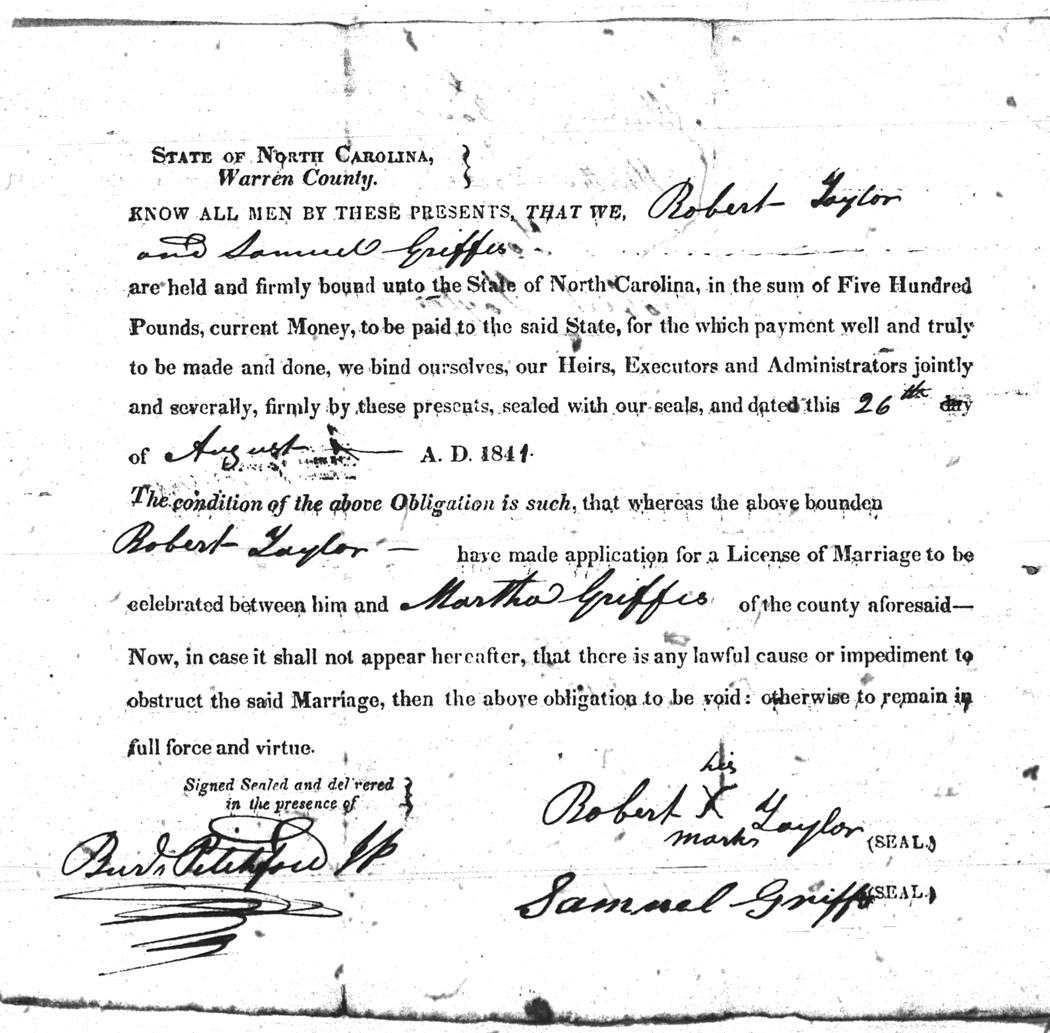 STATE OF NORTH CAROLINA,
Warren County.
KNOW ALL MEN BY THESE PRESENTS, THAT WE, Robert Taylor
and Samuel Griffis
are held and firmly bound unto the State of North Carolina, in the sum of Five Hundred
Pounds, current Money, to be paid to the said State, for the which payment well and truly
to be made and done, we bind ourselves, our Heirs, Executors and Administrators jointly
and severally, firmly by these presents, sealed with our seals, and dated this 26th day
of August A. D. 1841.
The condition of the above Obligation is such, that whereas the above bounden
Robert Taylor — have made application for a License of Marriage to be
celebrated between him and Martha Griffis of the county aforesaid—
Now, in case it shall not appear hereafter, that there is any lawful cause or impediment to
obstruct the said Marriage, then the above obligation to be void: otherwise to remain in
full force and virtue.
Signed Sealed and delivered
in the presence of
his
Robert X Taylor (SEAL.)
mark
Burd Pitchford JP
Samuel Griffis (SEAL.)